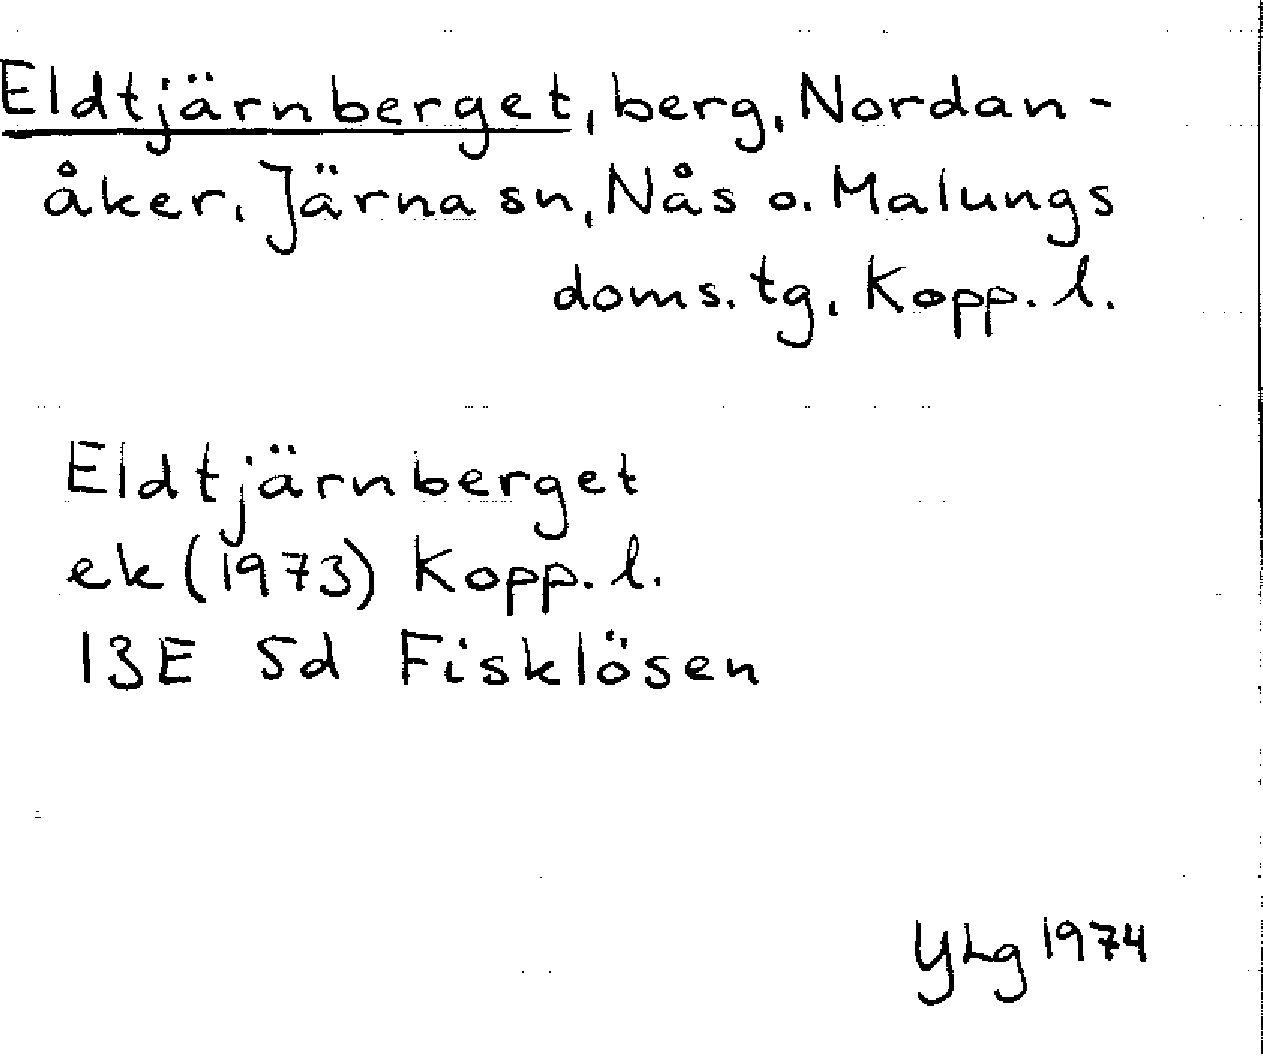 Eldtjärnberget, berg, Nordan-
åker, Järna sn, Nås o. Malungs
doms. tg, Kopp. l.
Eldtjärnberget
ek (1973) Kopp. l.
13E 5d Fisklösen
YLg 1974